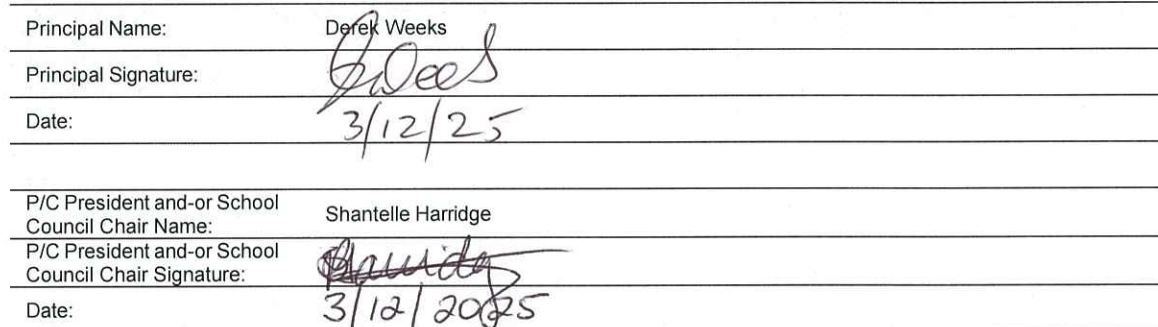 Principal Name: Derek Weeks
Principal Signature:
Date: 3/12/25
P/C President and-or School
Council Chair Name: Shantelle Harridge
P/C President and-or School
Council Chair Signature:
Date: 3/12/2025